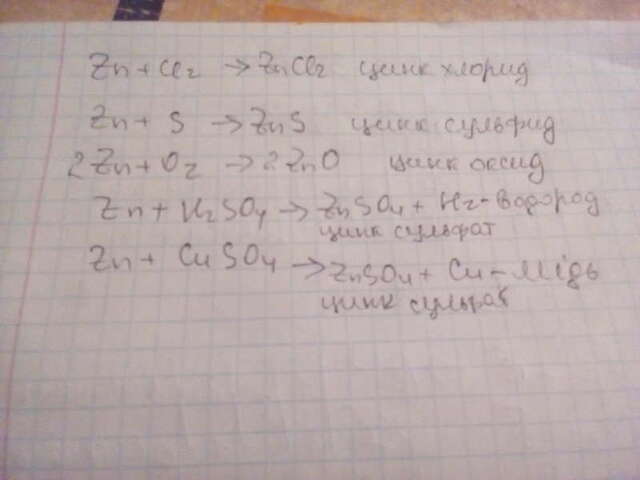 Zn + Cl2 → ZnCl2 цинк хлорид
Zn + S → ZnS цинк сульфид
2Zn + O2 → 2ZnO цинк оксид
Zn + H2SO4 → ZnSO4 + H2 - водород
цинк сульфат
Zn + CuSO4 → ZnSO4 + Cu - мідь
цинк сульфат